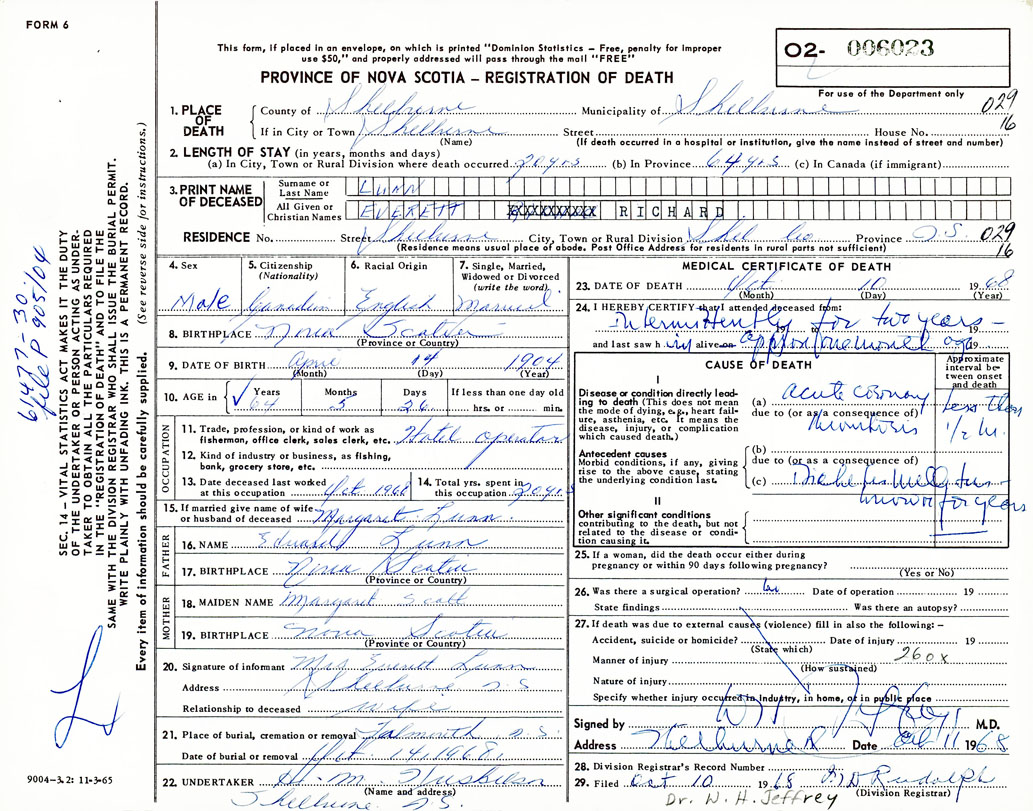 FORM 6
This form, if placed in an envelope, on which is printed "Dominion Statistics – Free, penalty for improper
use $50," and properly addressed will pass through the mail "FREE"
PROVINCE OF NOVA SCOTIA – REGISTRATION OF DEATH
O2- 006023
For use of the Department only
029
16
1. PLACE OF DEATH
County of Shelburne Municipality of Shelburne
If in City or Town Shelburne Street House No.
(Name) (If death occurred in a hospital or institution, give the name instead of street and number)
2. LENGTH OF STAY (in years, months and days)
(a) In City, Town or Rural Division where death occurred 20 yrs (b) In Province 64 yrs (c) In Canada (if immigrant)
3. PRINT NAME OF DECEASED
Surname or Last Name LUNN
All Given or Christian Names EVERETT RICHARD
RESIDENCE No. Street Shelburne City, Town or Rural Division Shel Co Province N.S. 029
(Residence means usual place of abode. Post Office Address for residents in rural parts not sufficient) 16
4. Sex Male
5. Citizenship (Nationality) Canadian
6. Racial Origin English
7. Single, Married, Widowed or Divorced (write the word) Married
8. BIRTHPLACE Nova Scotia
(Province or Country)
9. DATE OF BIRTH April 14 1904
(Month) (Day) (Year)
10. AGE in Years Months Days If less than one day old
64 hrs. or min.
OCCUPATION
11. Trade, profession, or kind of work as fisherman, office clerk, sales clerk, etc. Hotel operator
12. Kind of industry or business, as fishing, bank, grocery store, etc.
13. Date deceased last worked at this occupation Oct 1968
14. Total yrs. spent in this occupation 20 yrs
15. If married give name of wife or husband of deceased Margaret Lunn
FATHER
16. NAME Edward Lunn
17. BIRTHPLACE Nova Scotia
(Province or Country)
MOTHER
18. MAIDEN NAME Margaret Scott
19. BIRTHPLACE Nova Scotia
(Province or Country)
20. Signature of informant Mrs Everett Lunn
Address Shelburne N.S.
Relationship to deceased wife
21. Place of burial, cremation or removal Falmouth N.S.
Date of burial or removal Oct 14, 1968
22. UNDERTAKER H. M. Huskilson
(Name and address)
Shelburne N.S.
MEDICAL CERTIFICATE OF DEATH
23. DATE OF DEATH Oct 10 1968
(Month) (Day) (Year)
24. I HEREBY CERTIFY that I attended deceased from:
Intermittently for two years –
19 to 19
and last saw him alive on approx one month ago 19
CAUSE OF DEATH
Approximate interval between onset and death
I
Disease or condition directly leading to death (This does not mean the mode of dying, e.g., heart failure, asthenia, etc. It means the disease, injury, or complication which caused death.)
(a) Acute coronary less than
due to (or as a consequence of)
thrombosis 1/2 hr.
Antecedent causes
Morbid conditions, if any, giving rise to the above cause, stating the underlying condition last.
(b)
due to (or as a consequence of)
(c) Diabetes Mellitus
known for years
II
Other significant conditions
contributing to the death, but not related to the disease or condition causing it.
25. If a woman, did the death occur either during pregnancy or within 90 days following pregnancy?
(Yes or No)
26. Was there a surgical operation? Date of operation 19
State findings Was there an autopsy?
27. If death was due to external causes (violence) fill in also the following: –
Accident, suicide or homicide? Date of injury 19
(State which)
Manner of injury 260x
(How sustained)
Nature of injury
Specify whether injury occurred in Industry, in home, or in public place
Signed by M.D.
Address Shelburne Date Oct 11 1968
28. Division Registrar's Record Number
29. Filed Oct 10 1968 Rudolph
(Division Registrar)
Dr. W. H. Jeffrey
SEC. 14 – VITAL STATISTICS ACT MAKES IT THE DUTY
OF THE UNDERTAKER OR PERSON ACTING AS UNDER-
TAKER TO OBTAIN ALL THE PARTICULARS REQUIRED
IN THE "REGISTRATION OF DEATH" AND TO FILE THE
SAME WITH THE DIVISION REGISTRAR WHO SHALL ISSUE THE BURIAL PERMIT.
WRITE PLAINLY WITH UNFADING INK. THIS IS A PERMANENT RECORD.
Every item of information should be carefully supplied. (See reverse side for instructions.)
file P 905/04
9004-3.2: 11-3-65